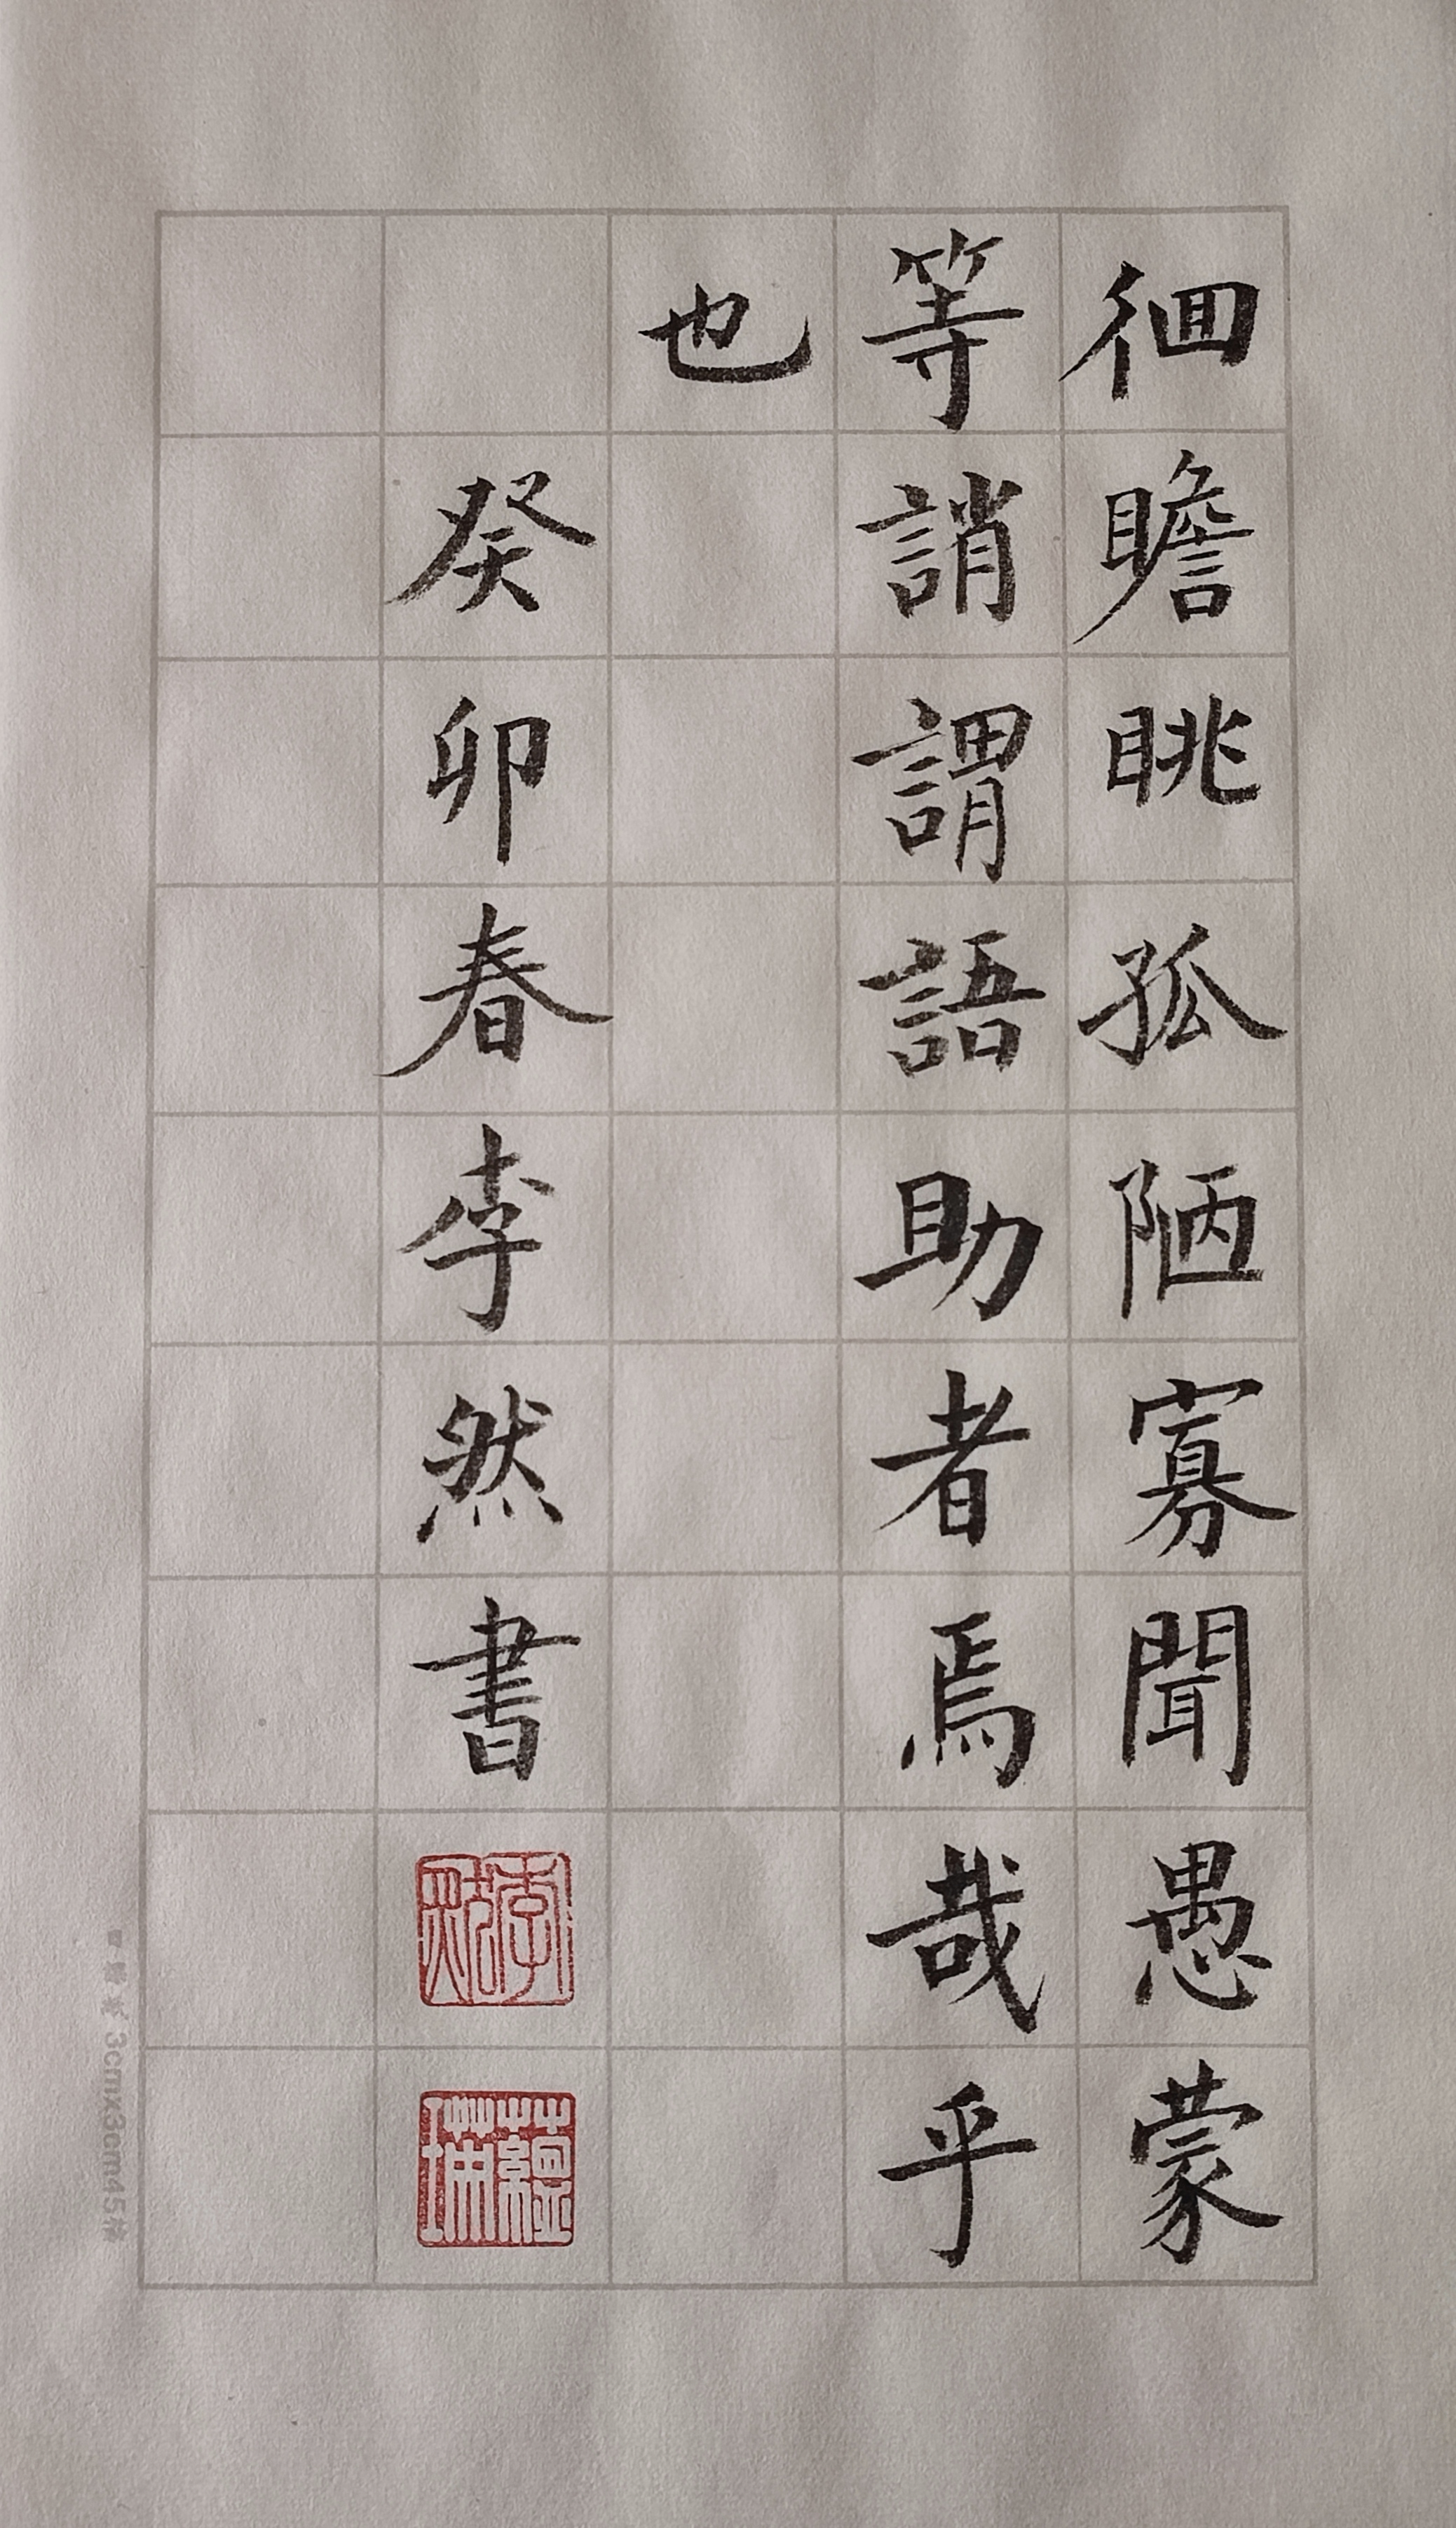 徊瞻眺孤陋寡聞愚蒙
等誚謂語助者焉哉乎
也
癸卯春李然書
李然
3cmx3cm45格